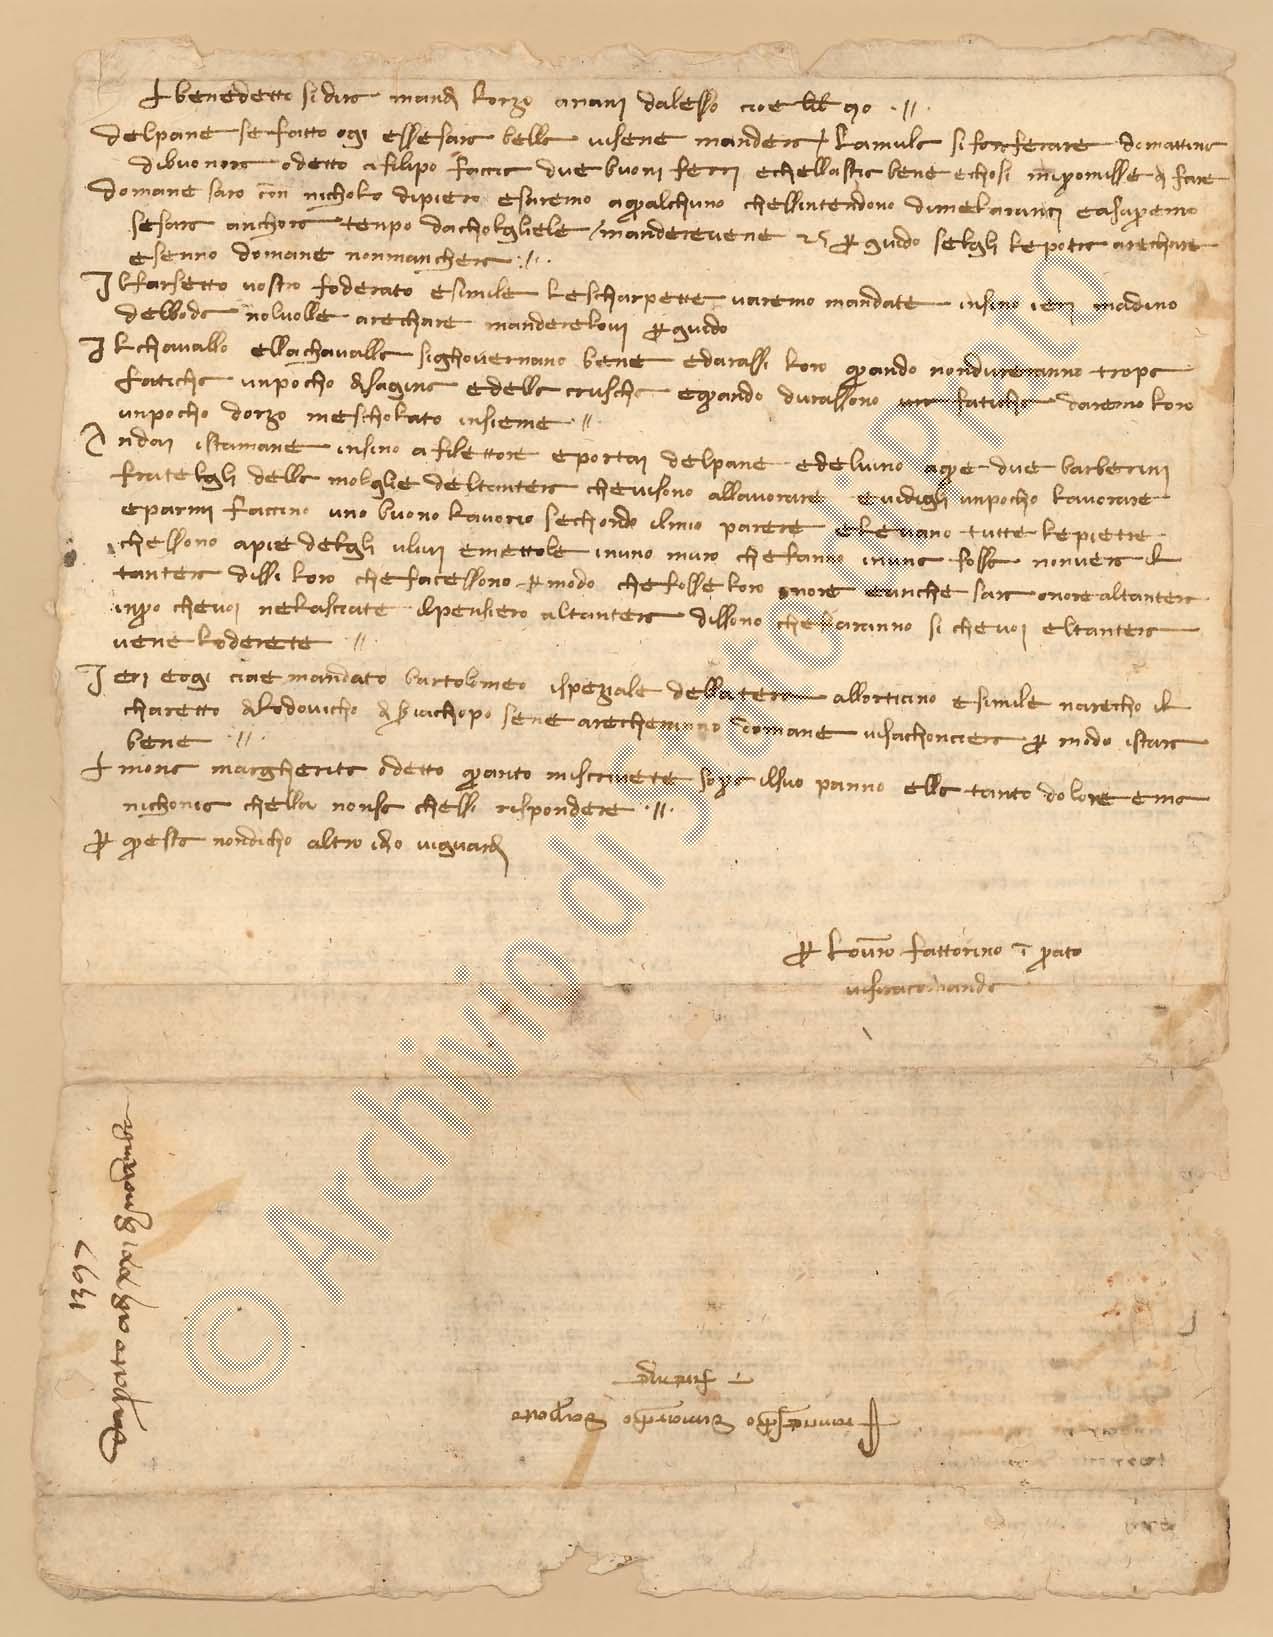 benedetto si dis mandi l'orzo a nani dalesso cioe
delpane se fatto ogi essesara bello visene mandera lamula si fo ferrare domattina
dibuonora odetto a filipo faccia due buoni ferri echellastia bene echosi mipromisse di fare
domane saro con nicholo dipiero esaremo a qualchuno chessintendono dimelaranci easapremo
sesara anchora tenpo dachoglliele manderevene 25 per guido selgli lepotra arechare
esenno domane nonmanchera
Ilfarsetto vostro foderato esimile lescharpette varemo mandate insino ieri madino
nolvolle arechare manderelovi per guido
Ilchavallo ellachavalla sighovernano bene edarassi loro quando nondureranno tropa
faticha unpocho di sagina edella crusca equando durassono faticha daremo loro
unpocho dorzo mescholato insieme
Andai istamane insino a filettore eportai delpane edelvino a que due barberini
frategli della moglie deltantera chevisono allavorare evidigli unpocho lavorare
eparmi faccino uno buono lavorio sechondo ilmio parere elevano tutte lepietre
chessono apie delgli ulivi emettole inuno muro chefanno inuna fossa nonvera il
tantera dissi loro chefacessono per modo chefosse loro onore eanche sara onore altantera
inpo chevoi nelasciate ilpensiero altantera dissono chefaranno si chevoi eltantera
vene loderete
Ieri eogi ciae mandato bartolomeo ispeziale dellaterra allorticino esimile narecho il
charetto di lodovicho di ser iachopo sene arecheranno domane visachoncera per modo istara
bene
mona margherita odetto quanto miscrivete sopra ilsuo panno ella tanto dolore ema
nichonia chella nonsa chessi rispondere
per questa nondicho altro idio viguardi
per lorenzo fattorino in prato
visiracomanda
francescho di marcho da prato
in firenze
da prato a dì di gnaio
1397